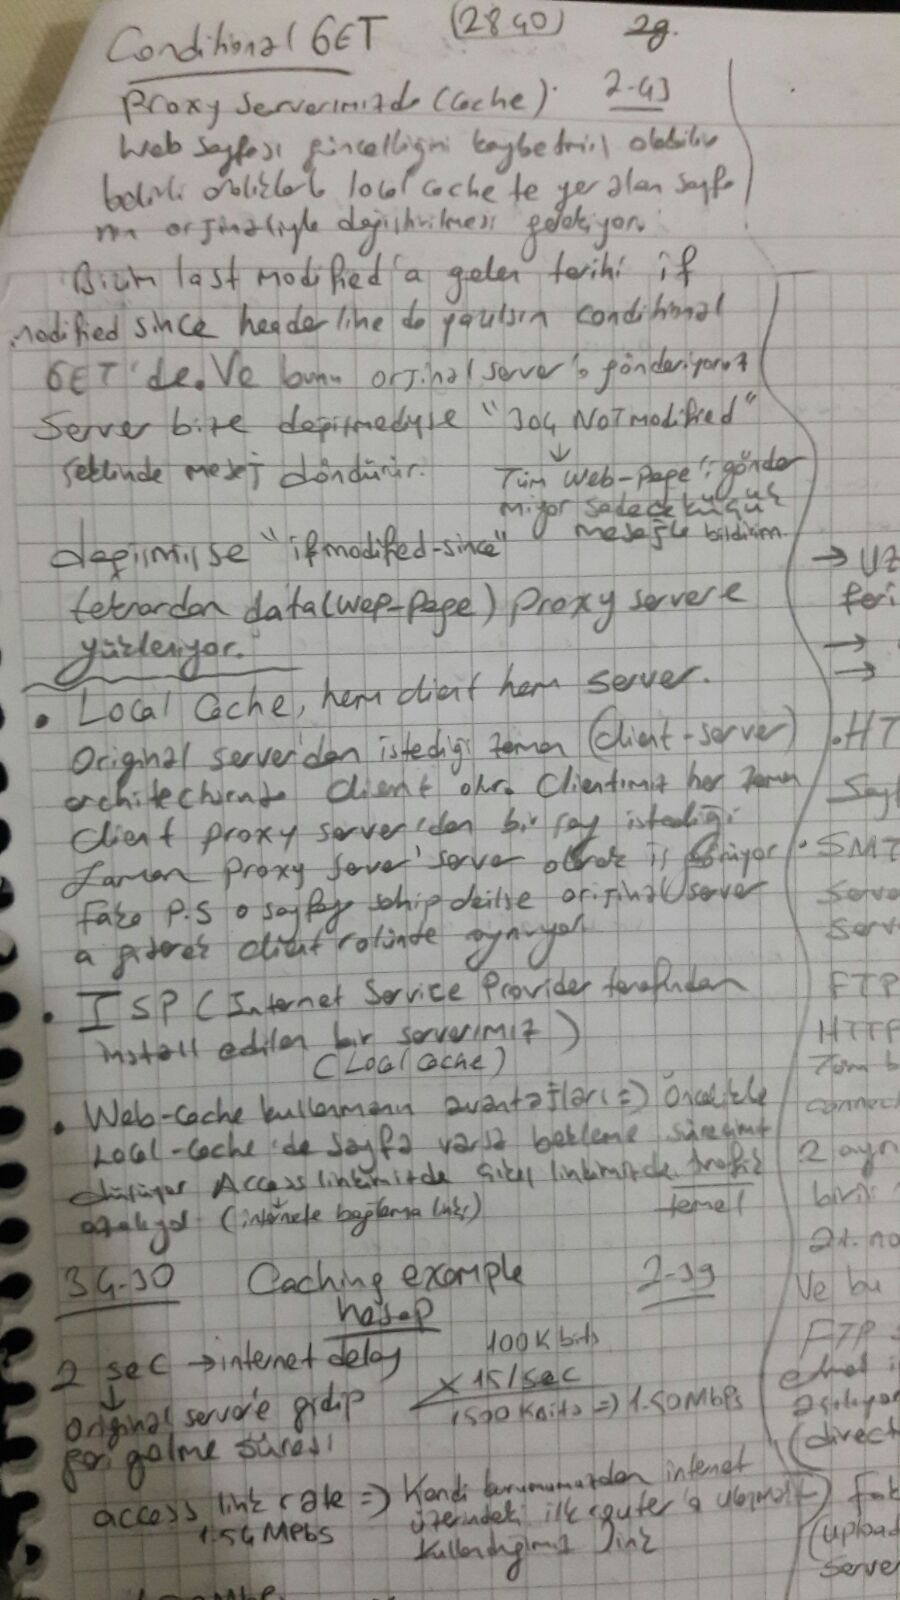 Conditional GET (28 40) 2g.
Proxy Serverımızda (Cache) 2-43
Web sayfası güncelliğini kaybetmiş olabilir
belirli aralıklarla local cache te yer alan sayfa
nın orjinaliyle değiştirilmesi gerekiyor.
Bizim last modified'a gelen tarihi if
modified since header line da yazılsın conditional
GET'de. Ve bunu orjinal server'a gönderiyoruz
Server bize değişmediyse "304 NOT modified"
şeklinde mesaj döndürür.
↓
Tüm Web-Page'i gönder
miyor sadece küçük
mesajla bildirim.
değişmişse "if modified-since"
tekrardan data (Wep-Page) Proxy servere
yükleniyor.
• Local Cache, hem client hem server.
Original server'dan istediği zaman (client-server)
client Clientımız her zaman
Client proxy server'dan bir şey istediği
zaman proxy server server olarak iş görüyor
fakat P.S o sayfaya sahip deilse original server
a giderek client rolünde oynuyor.
• ISP (Internet Service Provider tarafından
install edilen bir serverımız)
(Local Cache)
• Web-Cache kullanmanın avantajları => Öncelikle
Local-Cache'de Sayfa varsa bekleme süremiz
düşüyor Access linkimizde linkimizde trafik
azalıyor (internete bağlama linki) temel
34-30 Caching example 2-39
hesap
2 sec → internet delay 100K bits
↓ x 15/sec
Original server'e gidip 1500 KBits => 1.50 Mbps
geri gelme süresi
access link rate => Kendi kurumumuzdan internet
1.54 Mbps üzerindeki ilk router'a
kullandığımız link
→ UZ
feri
→
→
• HT
Sayf
• SMT
Serve
Serv
FTP
HTTP
Tüm b
connect
2 ayrı
birik
21. no
Ve bu
FTP s
(direct
(upload
Server